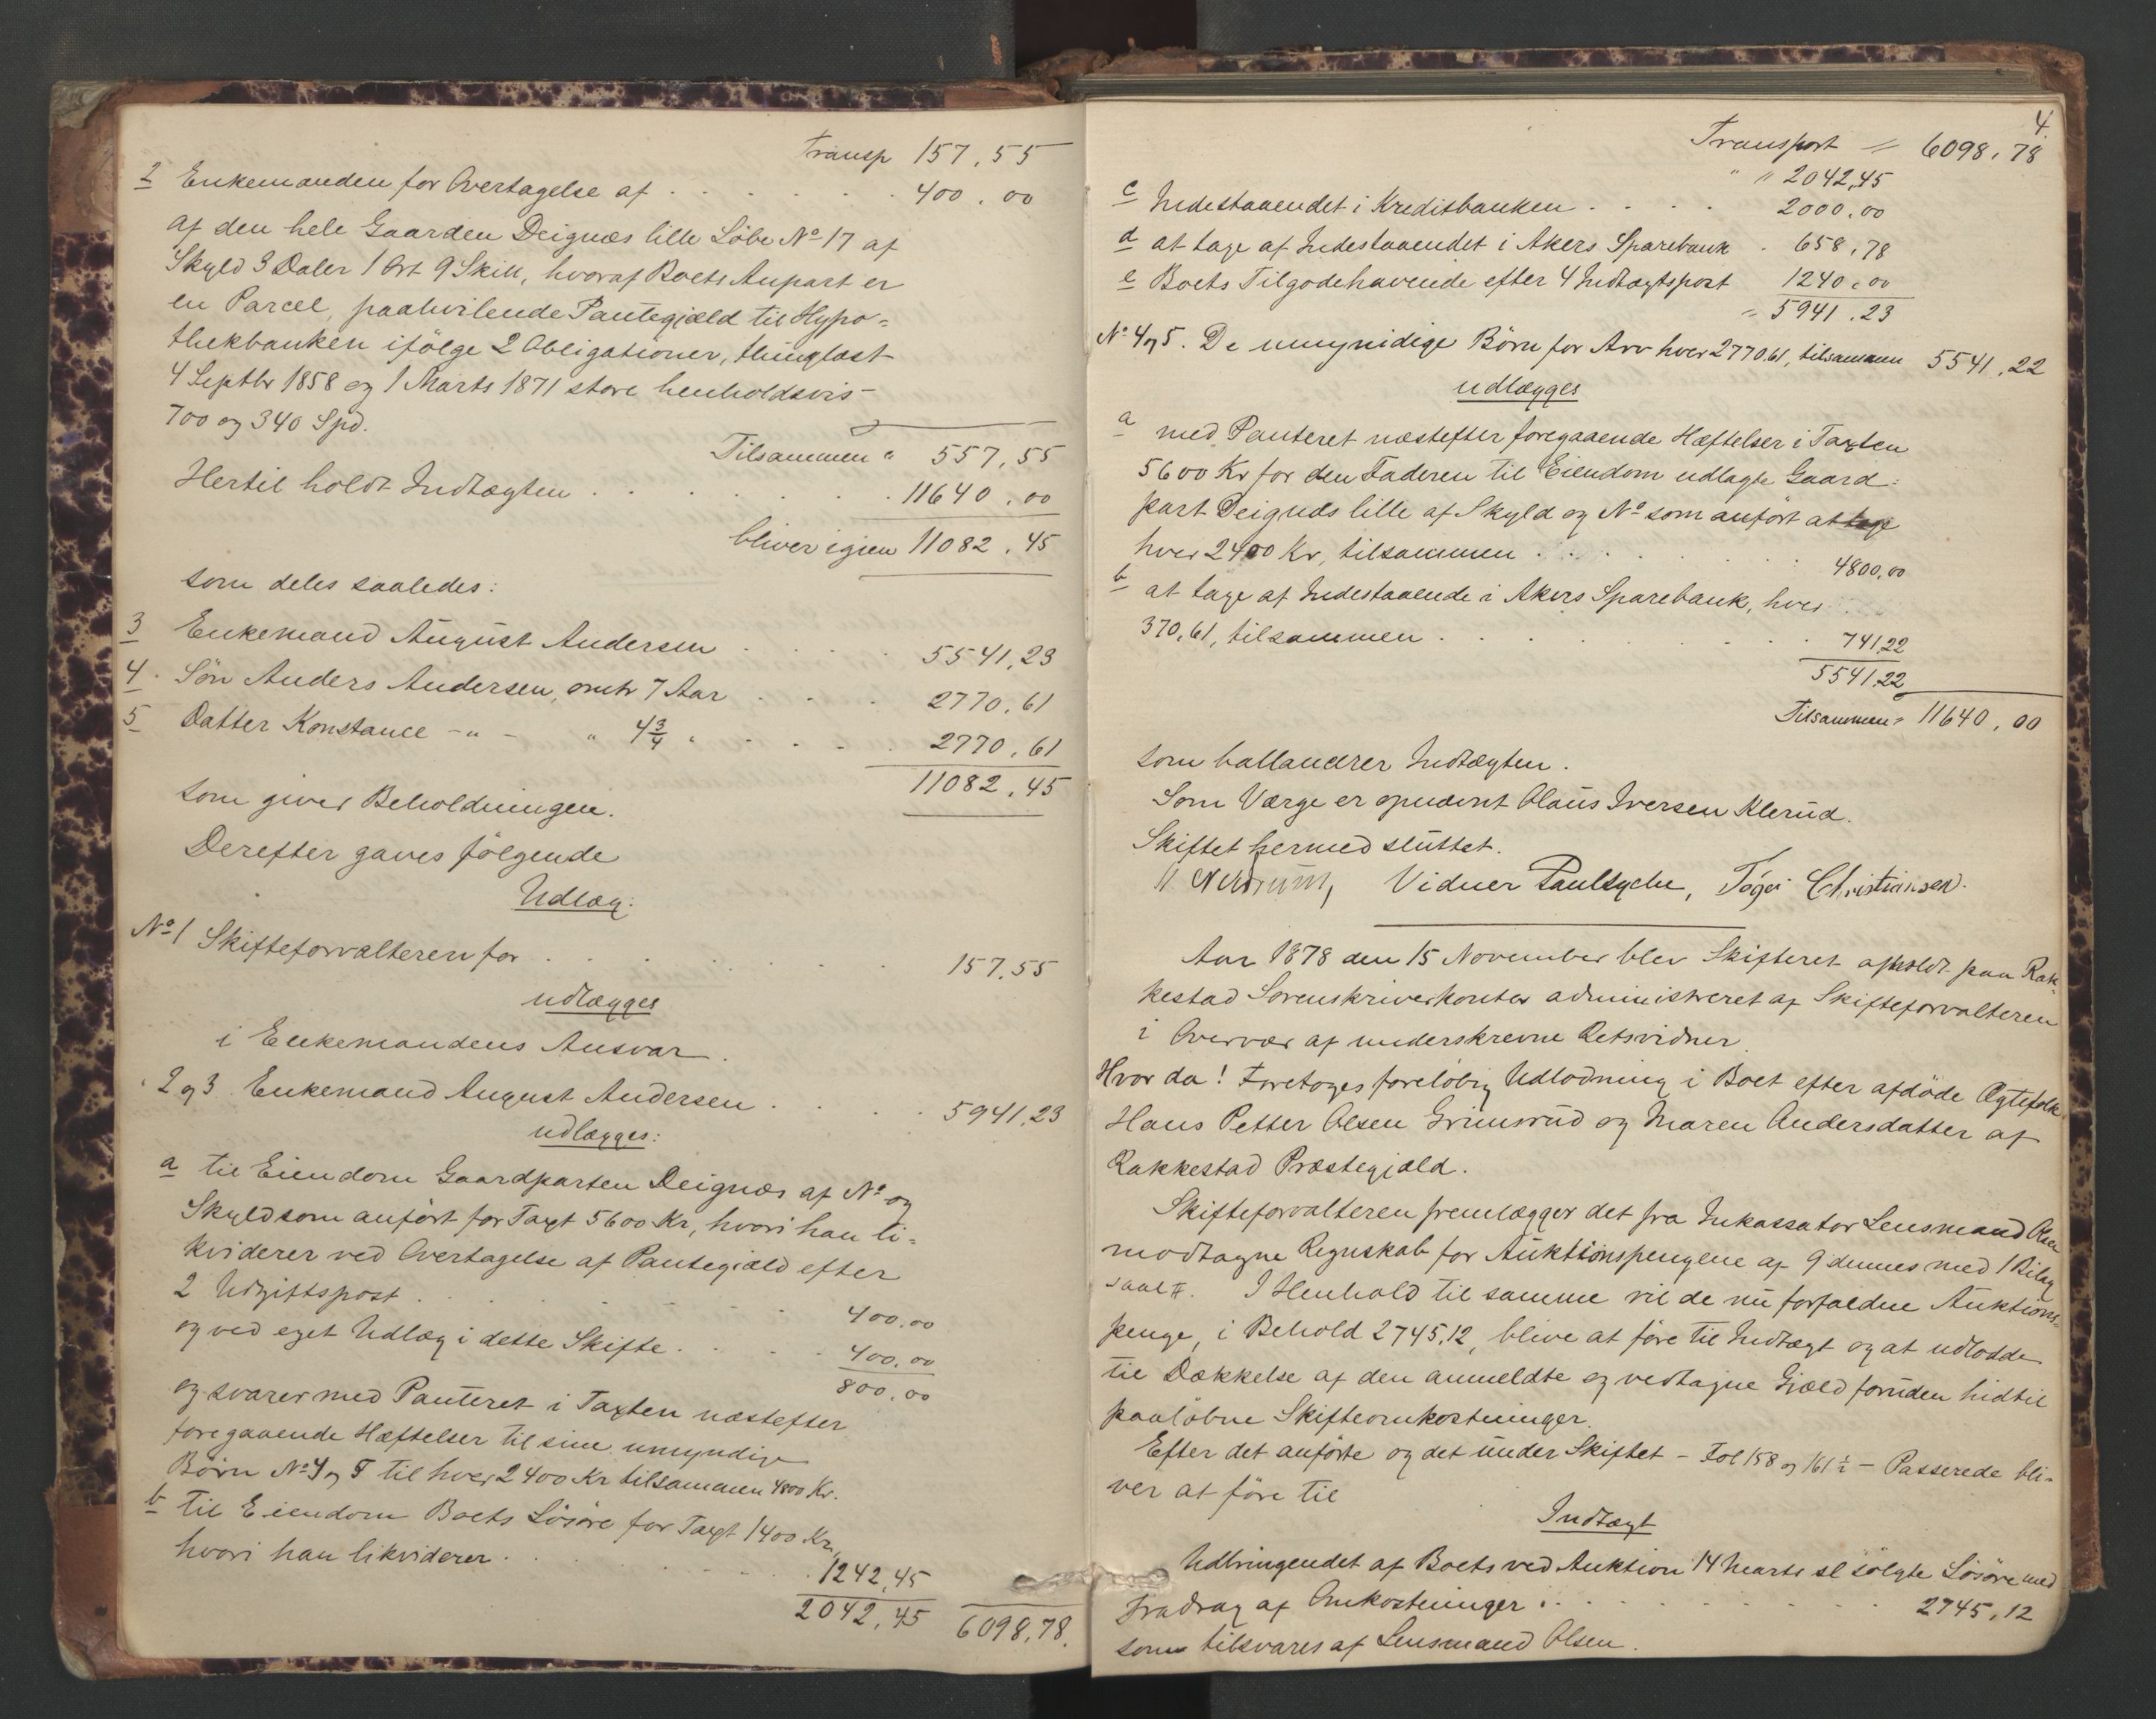 Transp 157.55
2 Enkemanden for Overtagelse af . . . . . 400.00
af den hele Gaarden Deignæs lille Löbe No 17 af
Skyld 3 Daler 1 Ort 9 Skill, hvoraf Boets Anpart er
en Parcel, paahvilende Pantegjæld til Hypo=
thekbanken ifölge 2 Obligationer, thinglæst
4 Septbr 1858 og 1 Marts 1871 store henholdsvis
700 og 340 Spd.
Tilsammen " 557.55
Hertil holdt Indtægten . . . . . 11640.00
bliver igjen 11082.45
som deles saaledes:
3 Enkemand August Andersen . . . . 5541.23
4. Sön Anders Andersen, omtr 7 Aar . . . 2770.61
5 Datter Konstance - " - " 4 3/4 " . . . . 2770.61
11082.45
som giver Beholdningen.
Derefter gaves fölgende
Udlæg:
No 1 Skifteforvalteren for . . . . . . 157.55
udlægges
i Enkemandens Ansvar.
2 og 3. Enkemand August Andersen . . . . 5941.23
udlægges:
a til Eiendom Gaardparten Deignæs af No og
Skyld som anfört for Taxt 5600 Kr, hvori han li=
kviderer ved Overtagelse af Pantegjæld efter
2 Udgiftspost . . . . . . 400.00
og ved eget Udlæg i dette Skifte . . . . 400.00
800.00
og svarer med Panteret i Taxten næstefter
foregaaende Hæftelser til sine umyndige
Börn No 4 og 5 til hver 2400 Kr tilsammen 4800 Kr.
b til Eiendom Boets Lösöre for Taxt 1400 Kr,
hvori han likviderer . . . . . 1242.45
2042.45 6098.78.
4.
Transport " 6098.78
" " 2042.45
c Indestaaendet i Kreditbanken . . . . 2000.00
d at tage af Indestaaendet i Akers Sparebank . 658.78
e Boets Tilgodehavende efter 4 Indtægtspost 1240.00
" 5941.23
No 4 og 5. De umynidige Börn for Arv hver 2770.61, tilsammen 5541.22
udlægges
a med Panteret næstefter foregaaende Hæftelser i Taxten
5600 Kr for den Faderen til Eiendom udlagte Gaard=
part Deignæs lille af Skyld og No som anfört at tage
hver 2400 Kr, tilsammen . . . . . 4800.00
b at tage af Indestaaende i Akers Sparebank, hver
370.61, tilsammen . . . . . . 741.22
5541.22
Tilsammen " 11640.00
som ballancerer Indtægten.
Som Værge er opnævnt Olaus Iversen Klerud.
Skiftet hermed sluttet.
Vidner Christiansen.
Aar 1878 den 15 November blev Skifteret afholdt paa Rak=
kestad Sorenskriverkontor administreret af Skifteforvalteren
i Overvær af underskrevne Retsvidner.
Hvor da! Foretoges foreløbig Udlodning i Boet efter afdöde Ægtefolk
Hans Petter Olsen Grimsrud og Maren Andersdatter af
Rakkestad Præstegjæld.
Skifteforvalteren fremlægger det fra Inkassator Lensmand Olsen
modtagne Regnskab for Auktionspengene af 9 dennes med 1 Bilag
saal #. I Henhold til samme vil de nu forfaldne Auktions=
penge, i Behold 2745.12, blive at före til Indtægt og at udlodde
til Dækkelse af den anmeldte og vedtagne Gjæld foruden hidtil
paalöbne Skifteomkostninger.
Efter det anförte og det under Skiftet - Fol 158 og 161 1/2 - Passerede bli=
ver at före til
Indtægt
Udbringendet af Boets ved Auktion 14 Marts sl solgte Lösöre med
Fradrag af Omkostninger . . . . . 2745.12
som tilsvares af Lensmand Olsen.